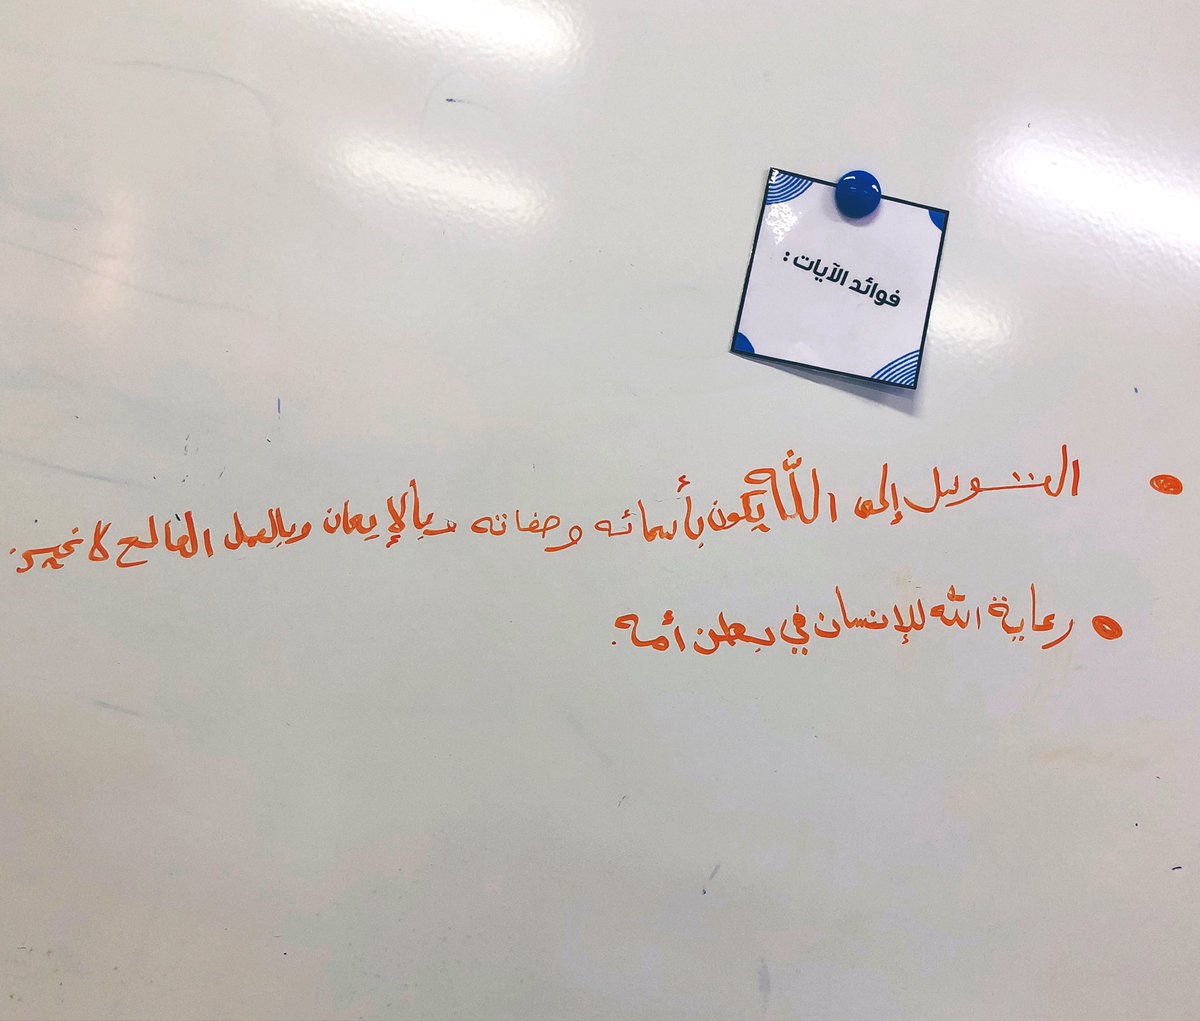 فوائد الآيات :
التوسل إلى الله يكون بأسمائه وصفاته وبالإيمان وبالعمل الصالح لا غير.
رعاية الله للإنسان في بطن أمه.